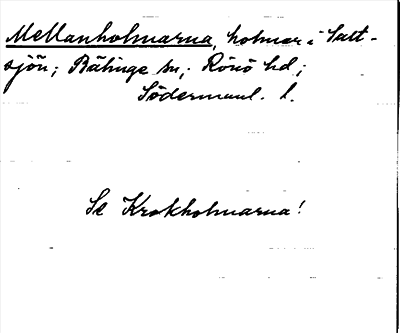 Mellanholmarna, holmar i Salt-
sjön; Bälinge sn, Rönö hd;
Södermanl. l.
Se Krokholmarna!